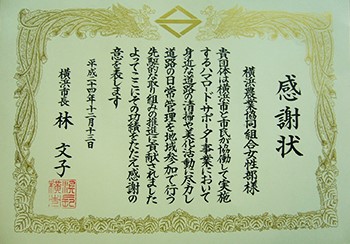 感謝状
横浜農業協同組合女性部様
貴団体は横浜市と市民が協働して実施
するハマロード・サポーター事業において
身近な道路の清掃や美化活動に尽力し
道路の日常管理を地域参加で行う
先駆的な取り組みの推進に貢献されました
よってここにその功績をたたえ感謝の
意を表します
平成二十四年十二月十三日
横浜市長 林 文子